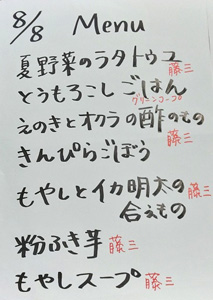 8/8 Menu
夏野菜のラタトゥユ
藤三
とうもろこしごはん
グリーンコープ
えのきとオクラの酢のもの
藤三
きんぴらごぼう
もやしとイカ明太の
藤三
合えもの
粉ふき芋 藤三
もやしスープ 藤三